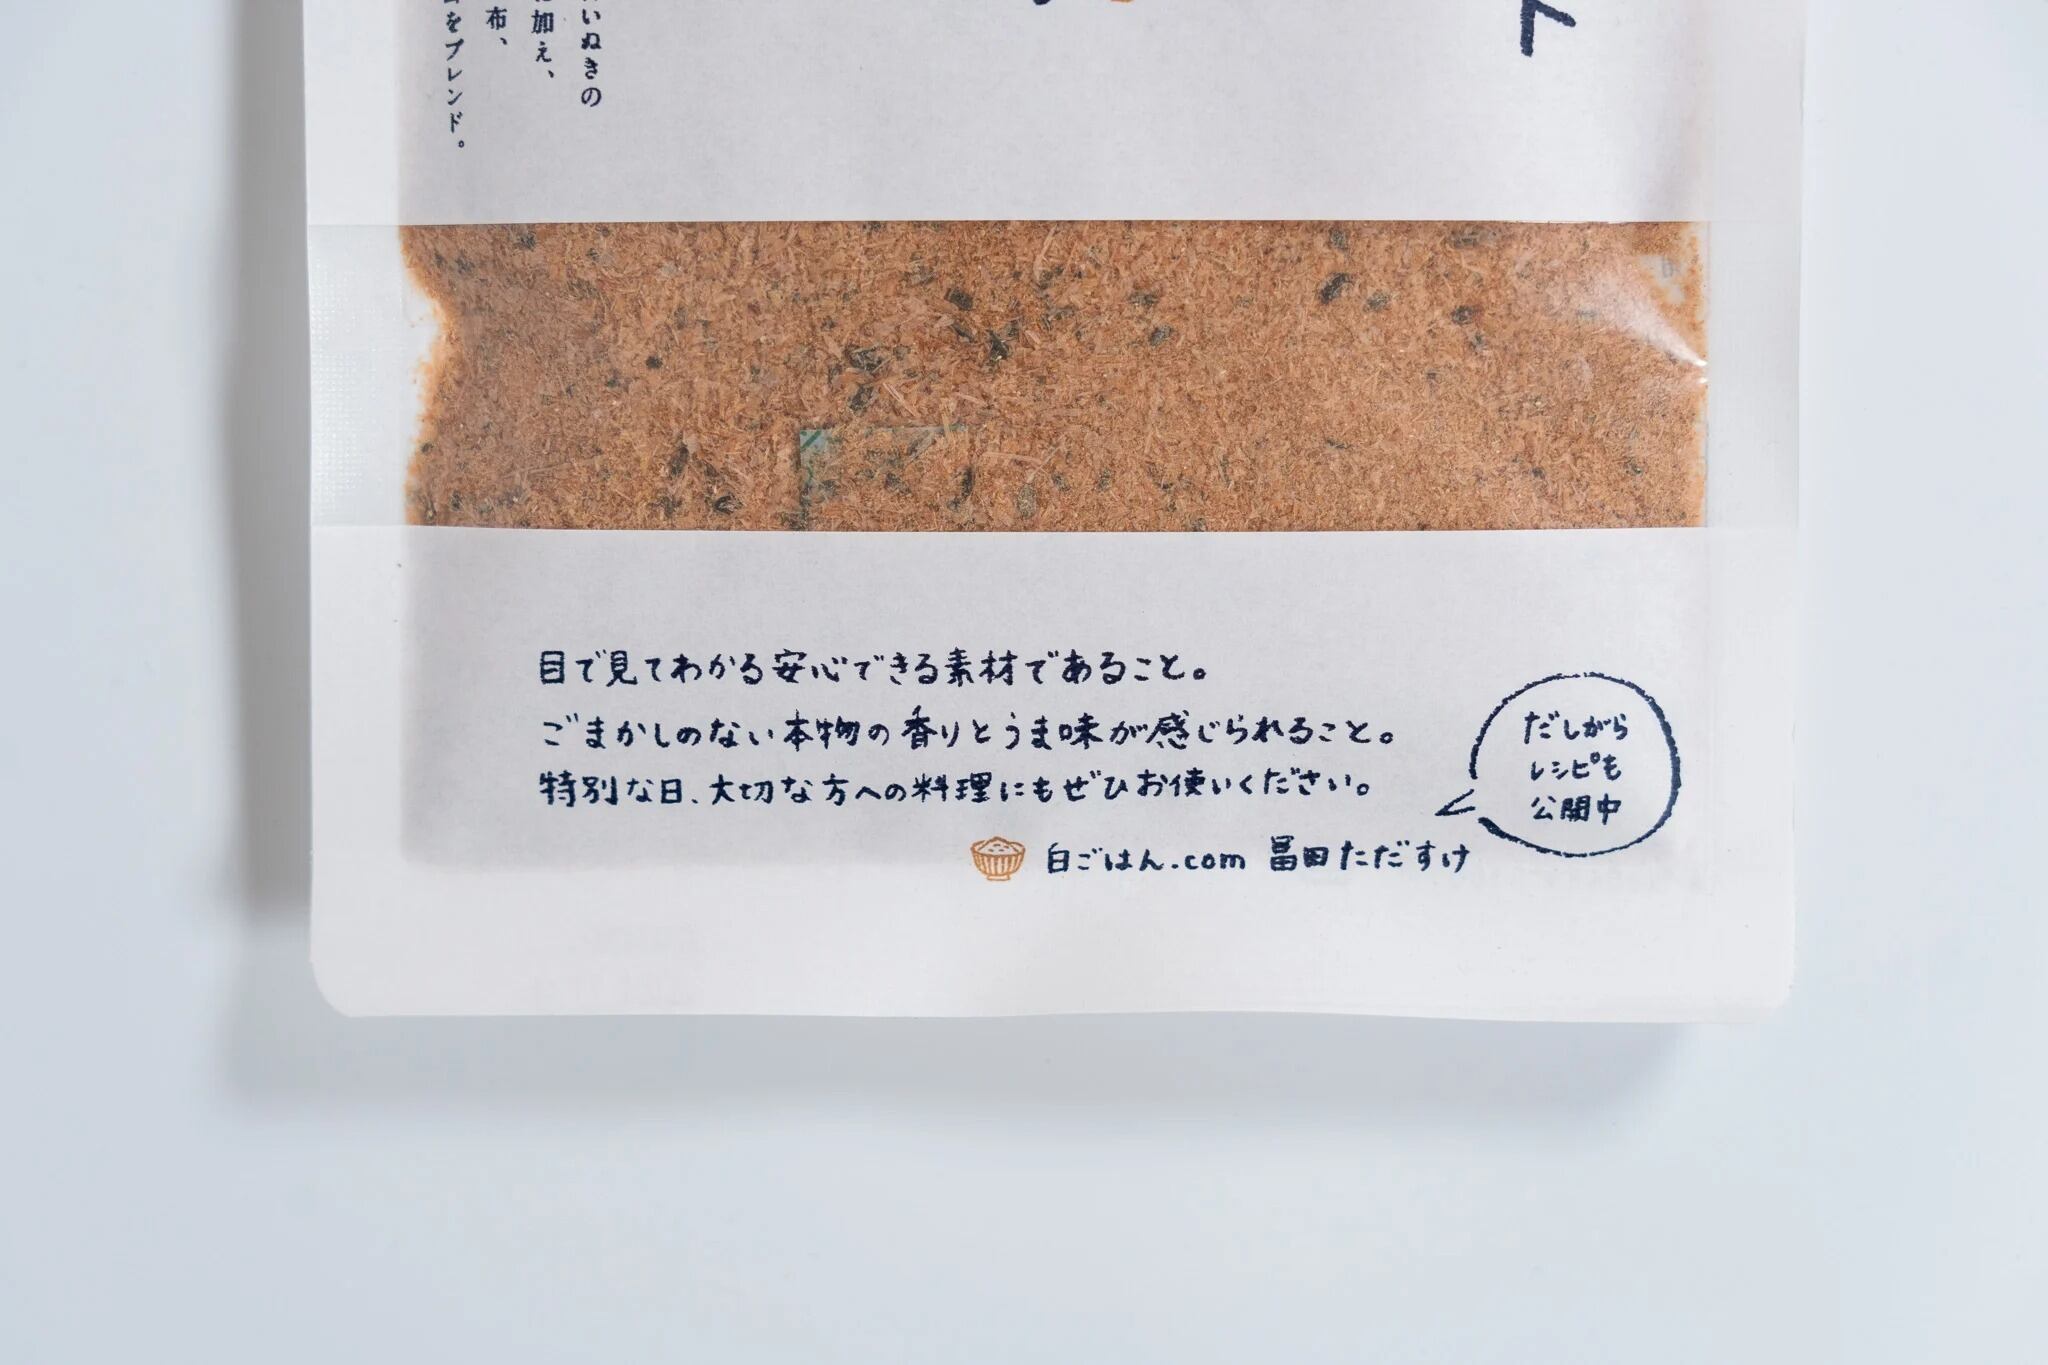 いぬきの
加え、
布、
をブレンド。
目で見てわかる安心できる素材であること。
ごまかしのない本物の香りとうま味が感じられること。
特別な日、大切な方への料理にもぜひお使いください。
白ごはん.com 冨田ただすけ
だしがら
レシピも
公開中